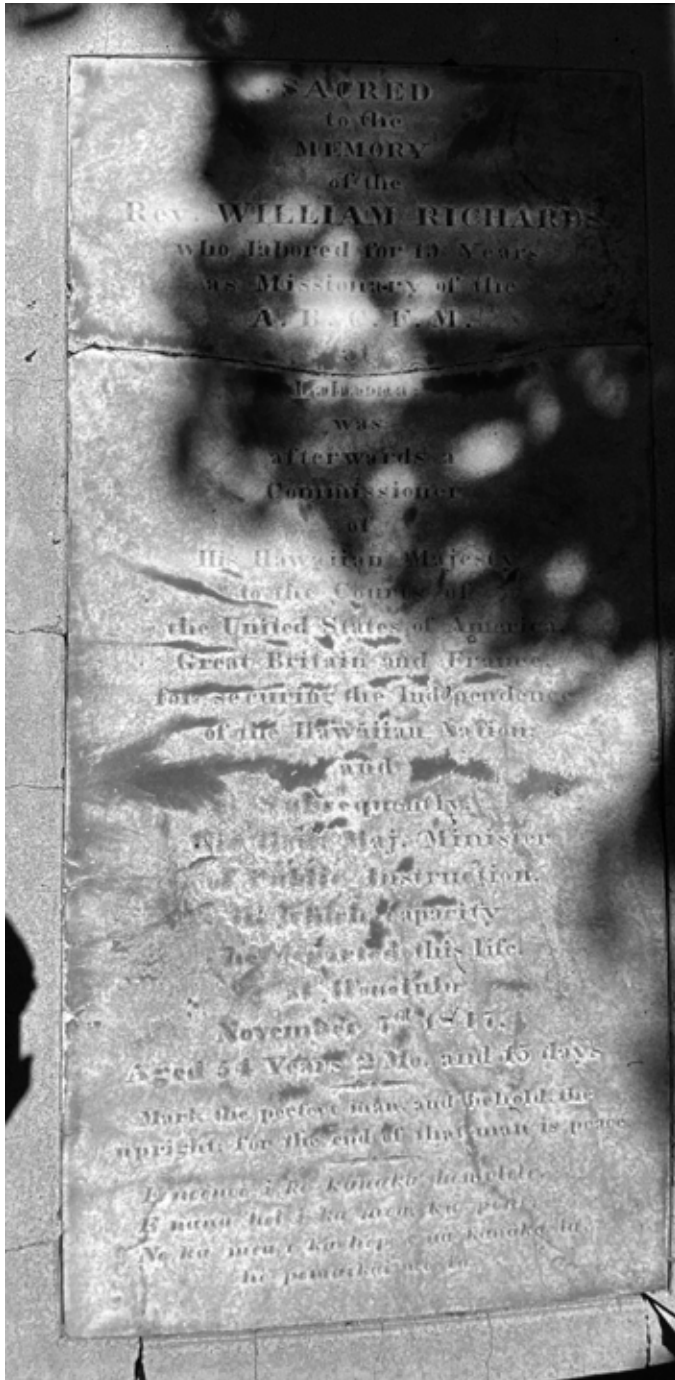 SACRED
to the
MEMORY
of the
Rev. WILLIAM RICHARDS.
who labored for 15 Years
as Missionary of the
A. B. C. F. M.
at
was
afterwards a
Commissioner
of
His Hawaiian Majesty
to the Courts of
the United States of America,
Great Britain and France,
for securing the Independence
of the Hawaiian Nation;
and
Subsequently
His Maj. Minister
of Public Instruction.
in which capacity
he departed this life.
at Honolulu
November 7th 1847.
Aged 54 Years 2 Mo. and 15 days
Mark the perfect man, and behold the
upright; for the end of that man is peace
i ke kanaka
E nana hoi i ka mea
No ka mea o ka hope o ua kanaka la